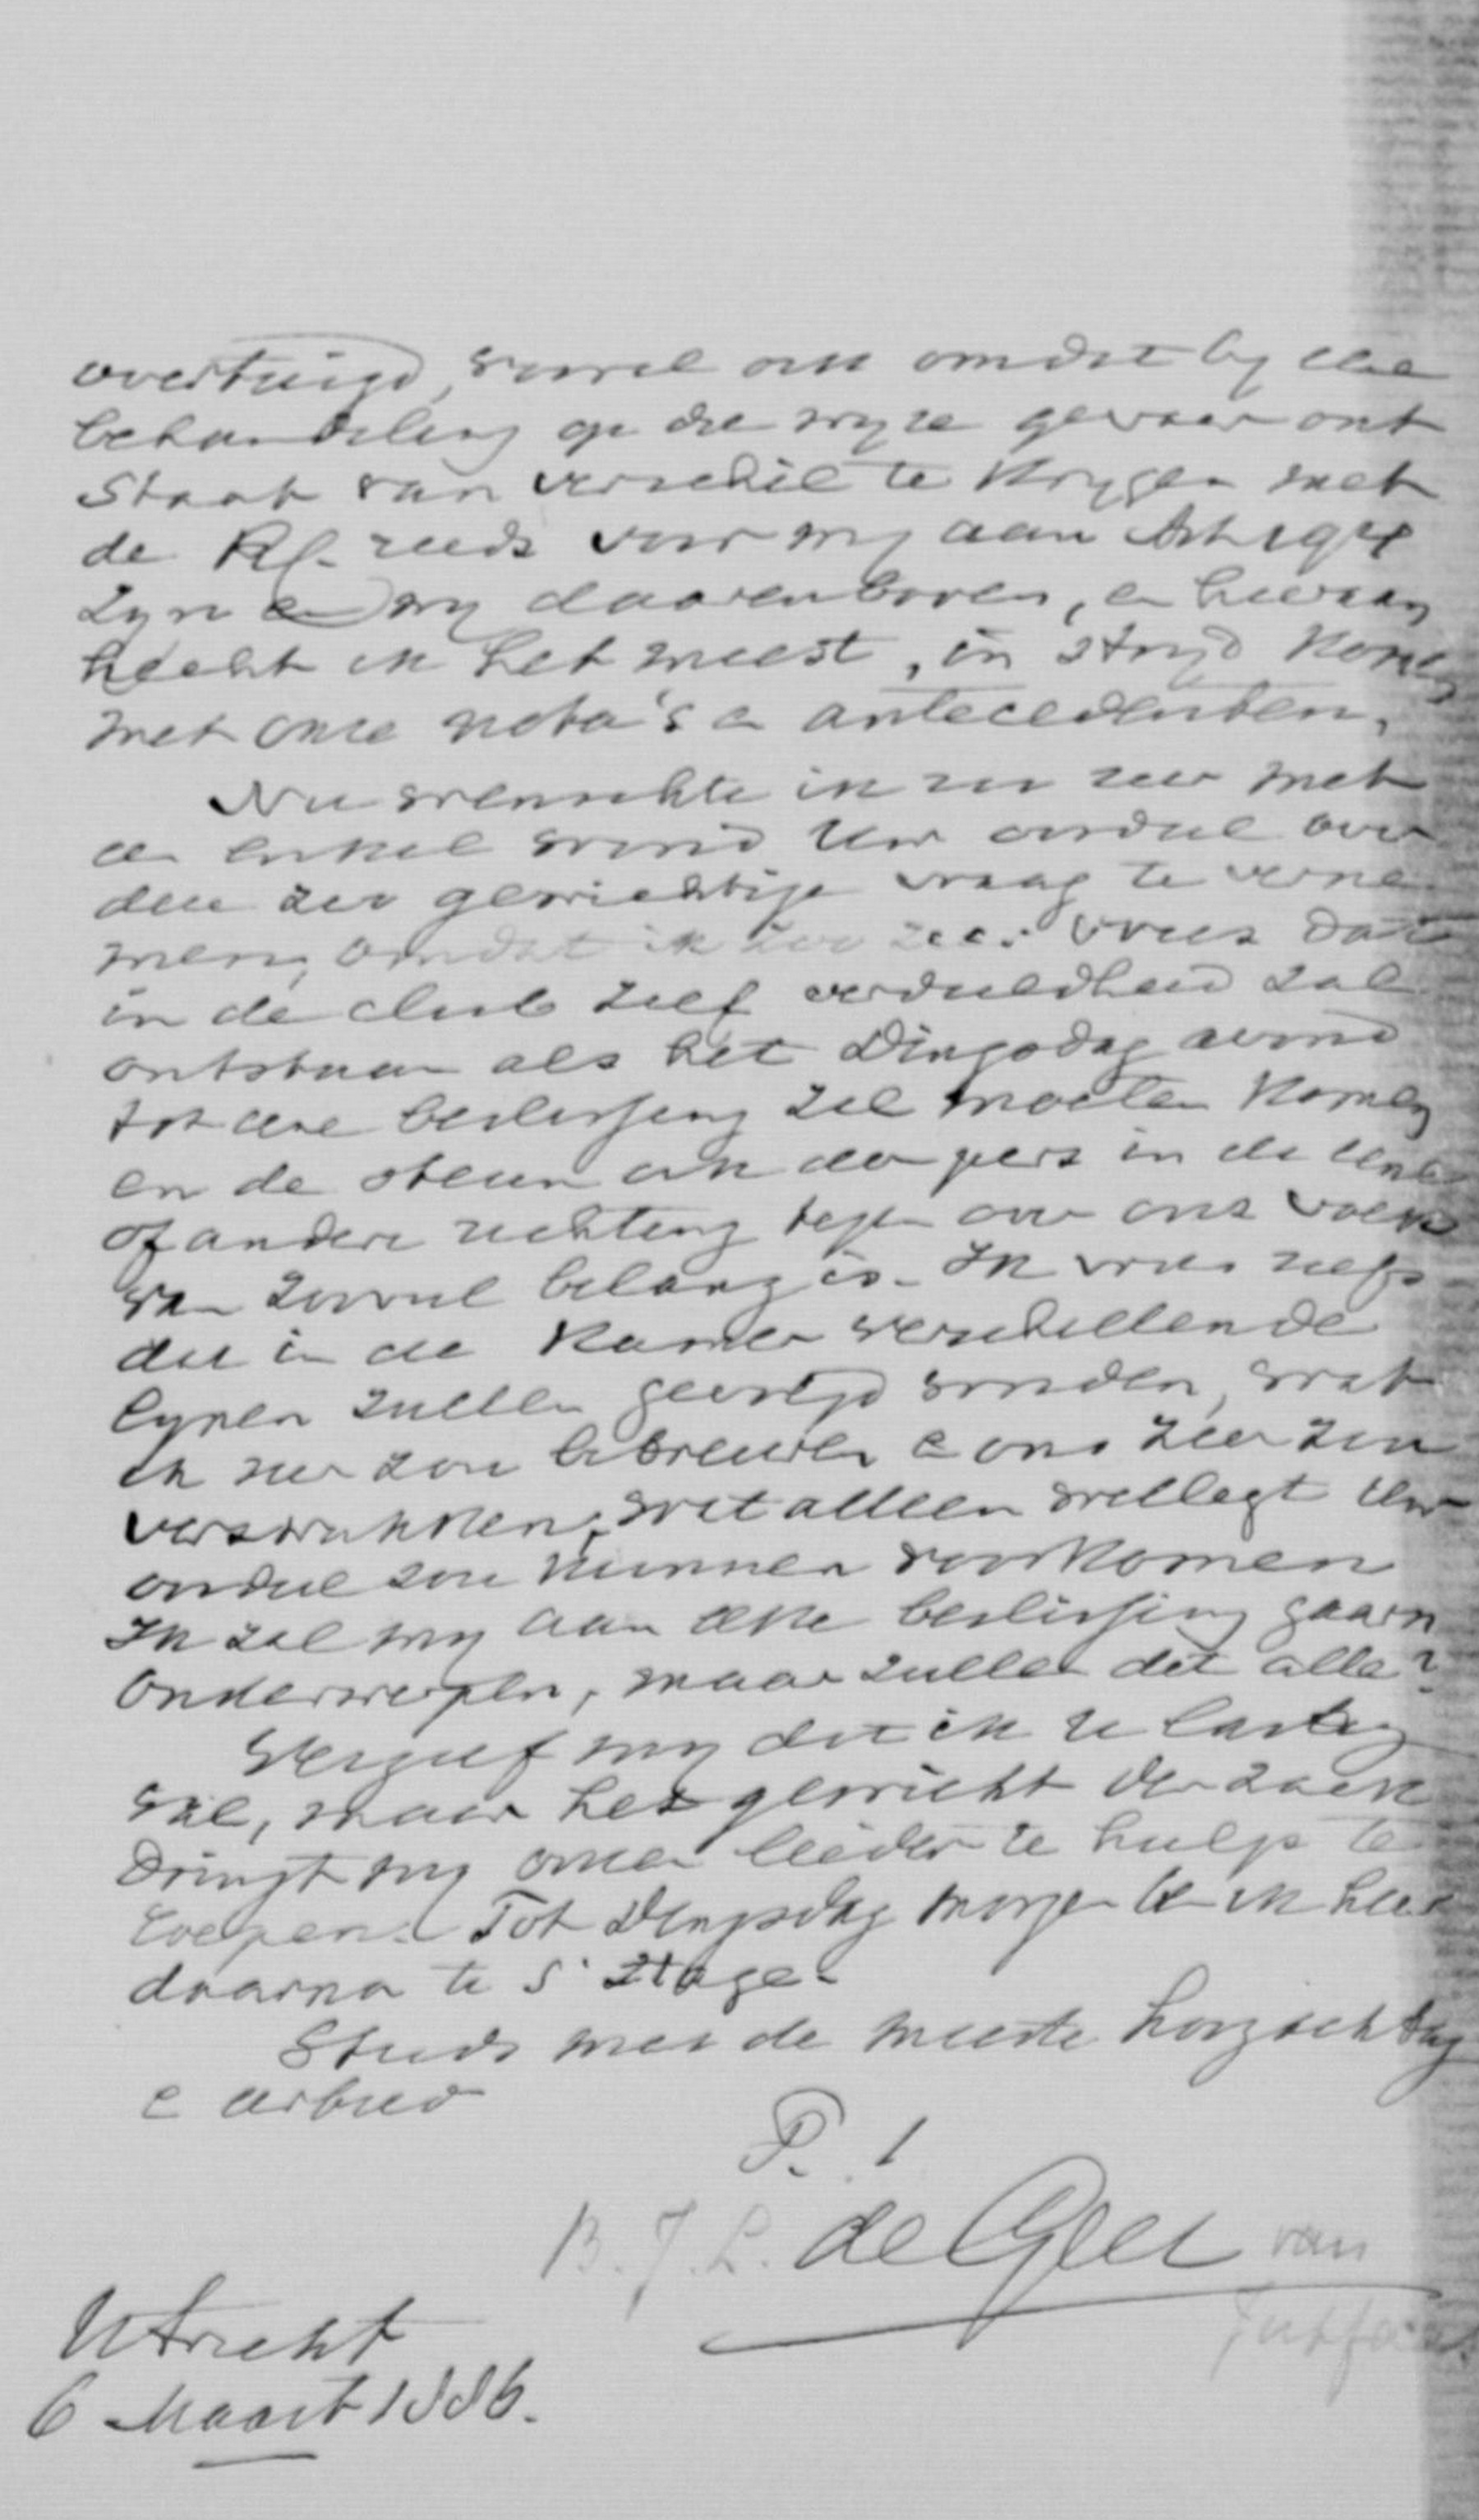 overtuigd, zoowel ook omdat by elke
behandeling op die wyze gevaar ont
staat van verschil te krygen met
de RC. reeds voor wy aan Art 194
zyn en wy daarenboven, en hieraan
hecht ik het meest, in stryd komen
met onze nota's en antecedenten.
Nu wenschte ik zoo zeer met
een enkel woord Uw oordeel over
deze zeer gewichtige vraag te verne
men, omdat ik zoo zeer vrees dat
in de club zelf verdeeldheid zal
ontstaan als het Dingsdag avond
tot eene beslissing zal moeten komen
en de steun ook der pers in de eene
of andere richting tegen over ons volk
van zooveel belang is. Ik vrees zelfs
dat in de Kamer verschillende
lynen zullen gevolgd worden, wat
ik zeer zou betreuren e ons zeer zou
verzwakken, wat alleen wellegt Uw
oordeel zou kunnen voorkomen
Ik zal my aan elke beslissing gaarn
onderwerpen, maar zullen dit alle?
Vergeef my dat ik U lastig
val, maar het gewicht der zaak
dringt my onzen leider te hulp te
roepen. Tot Dingsdag morgen ben ik hier
daarna te s' Hage.
Steeds met de meeste hoogachting
e eerbied
B. J. L. de Geer van
Jutfaas.
Utrecht
6 Maart 1886.